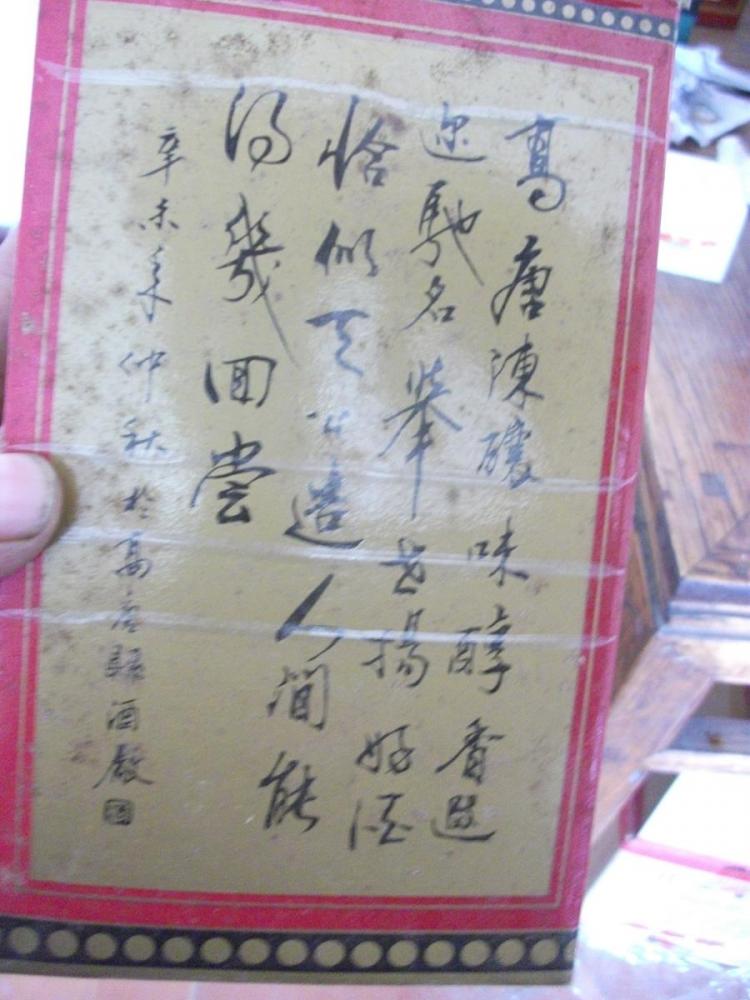 高唐陳釀味醇香遐
迩馳名舉世揚好酒
恰似天造人間能
得幾回尝
辛未年仲秋於高唐縣酒廠